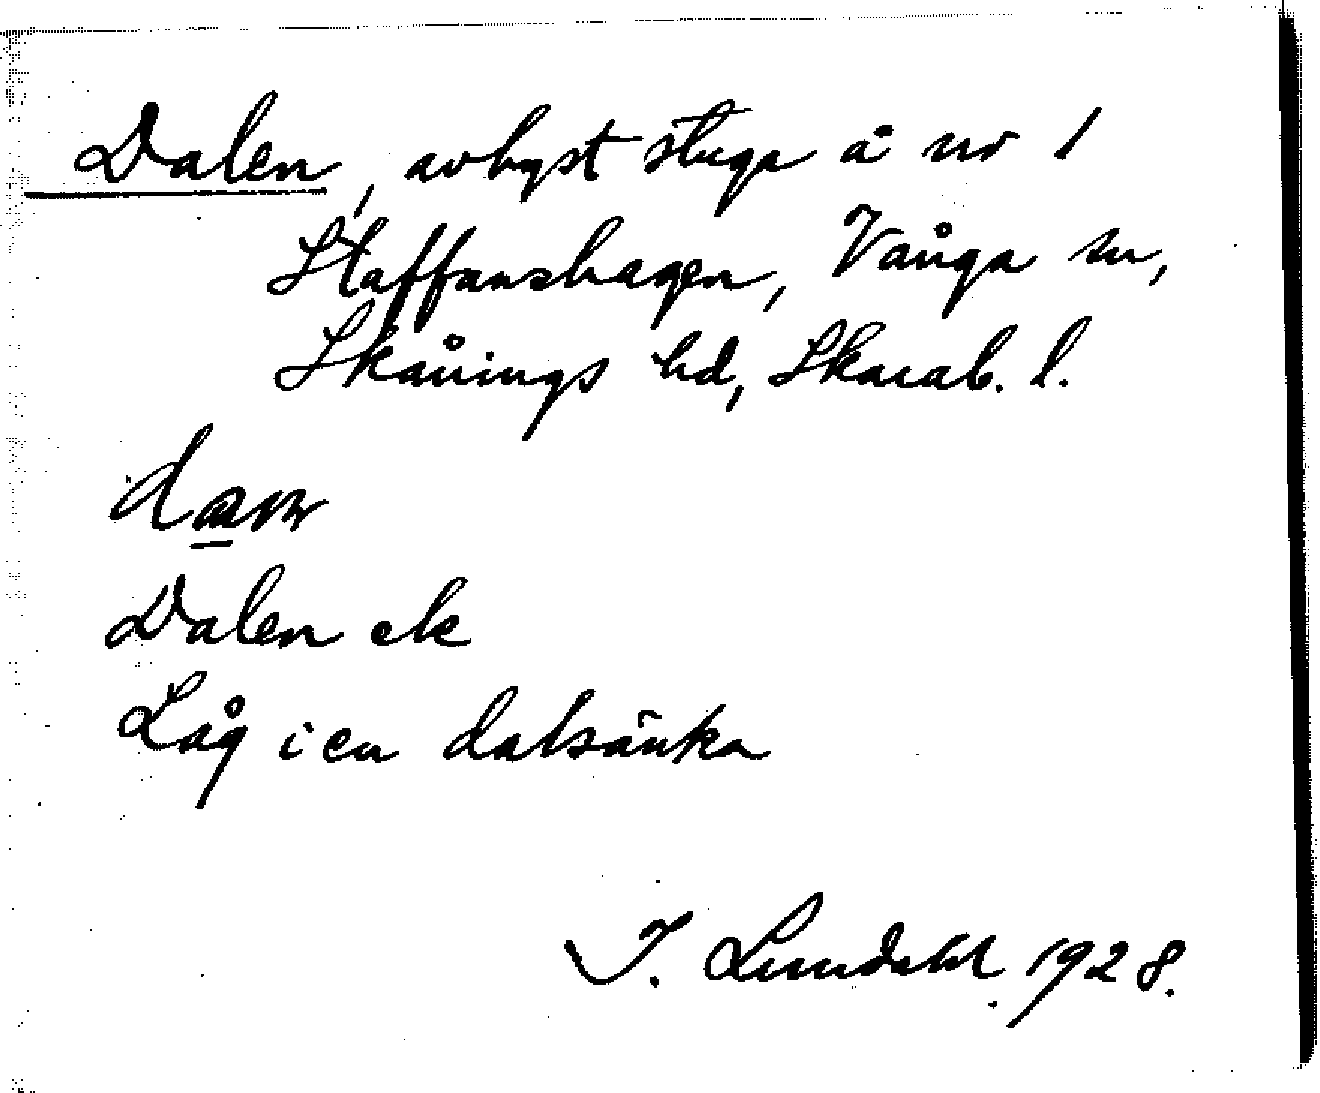 Dalen, avbyst stuga å nr 1
Staffanshagen, Vånga sn,
Skånings hd, Skarab. l.
Dalen ek
Låg i en dalsänka
I. Lundahl. 1928.